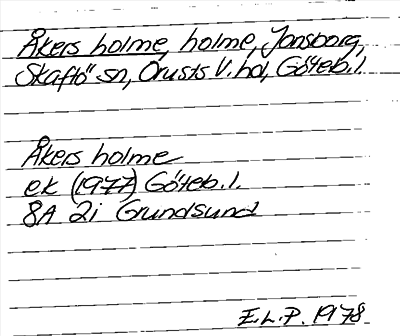 Åkers holme, holme, Jonsborg,
Skaftö sn, Orusts V. hd, Göteb. l.
Åkers holme
ek (1977) Göteb. l.
8A 2i Grundsund
E.L.P. 1978